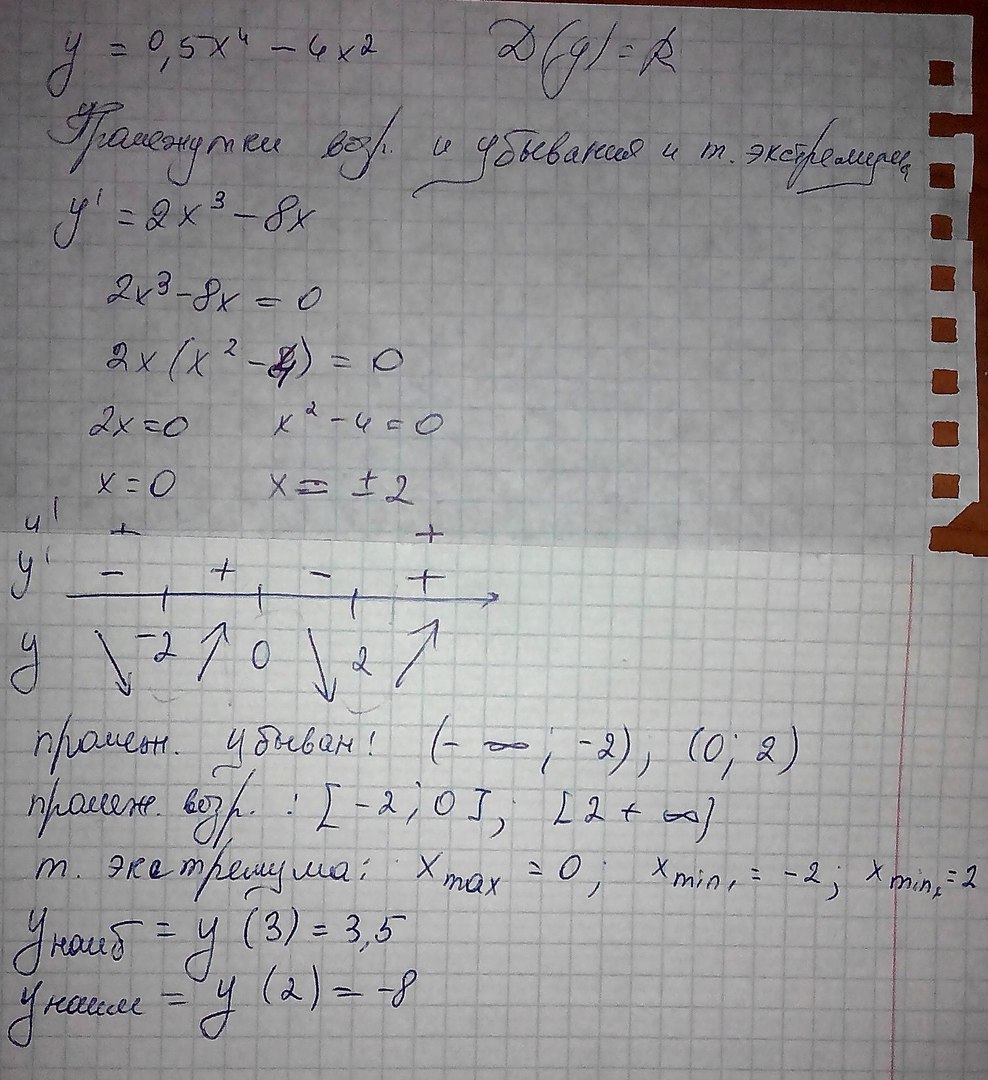 y = 0,5x⁴ - 4x² D(y) = R
Промежутки возр. и убывания и т. экстремума
y' = 2x³ - 8x
2x³ - 8x = 0
2x(x² - 4) = 0
2x = 0 x² - 4 = 0
x = 0 x = ±2
y' + +
y' - + - +
y -2 0 2
промеж. убыван: (-∞; -2); (0; 2)
промеж. возр.: [-2; 0]; [2 + ∞)
т. экстремума: x max = 0; x min₁ = -2; x min₂ = 2
y наиб = y (3) = 3,5
y наим = y (2) = -8